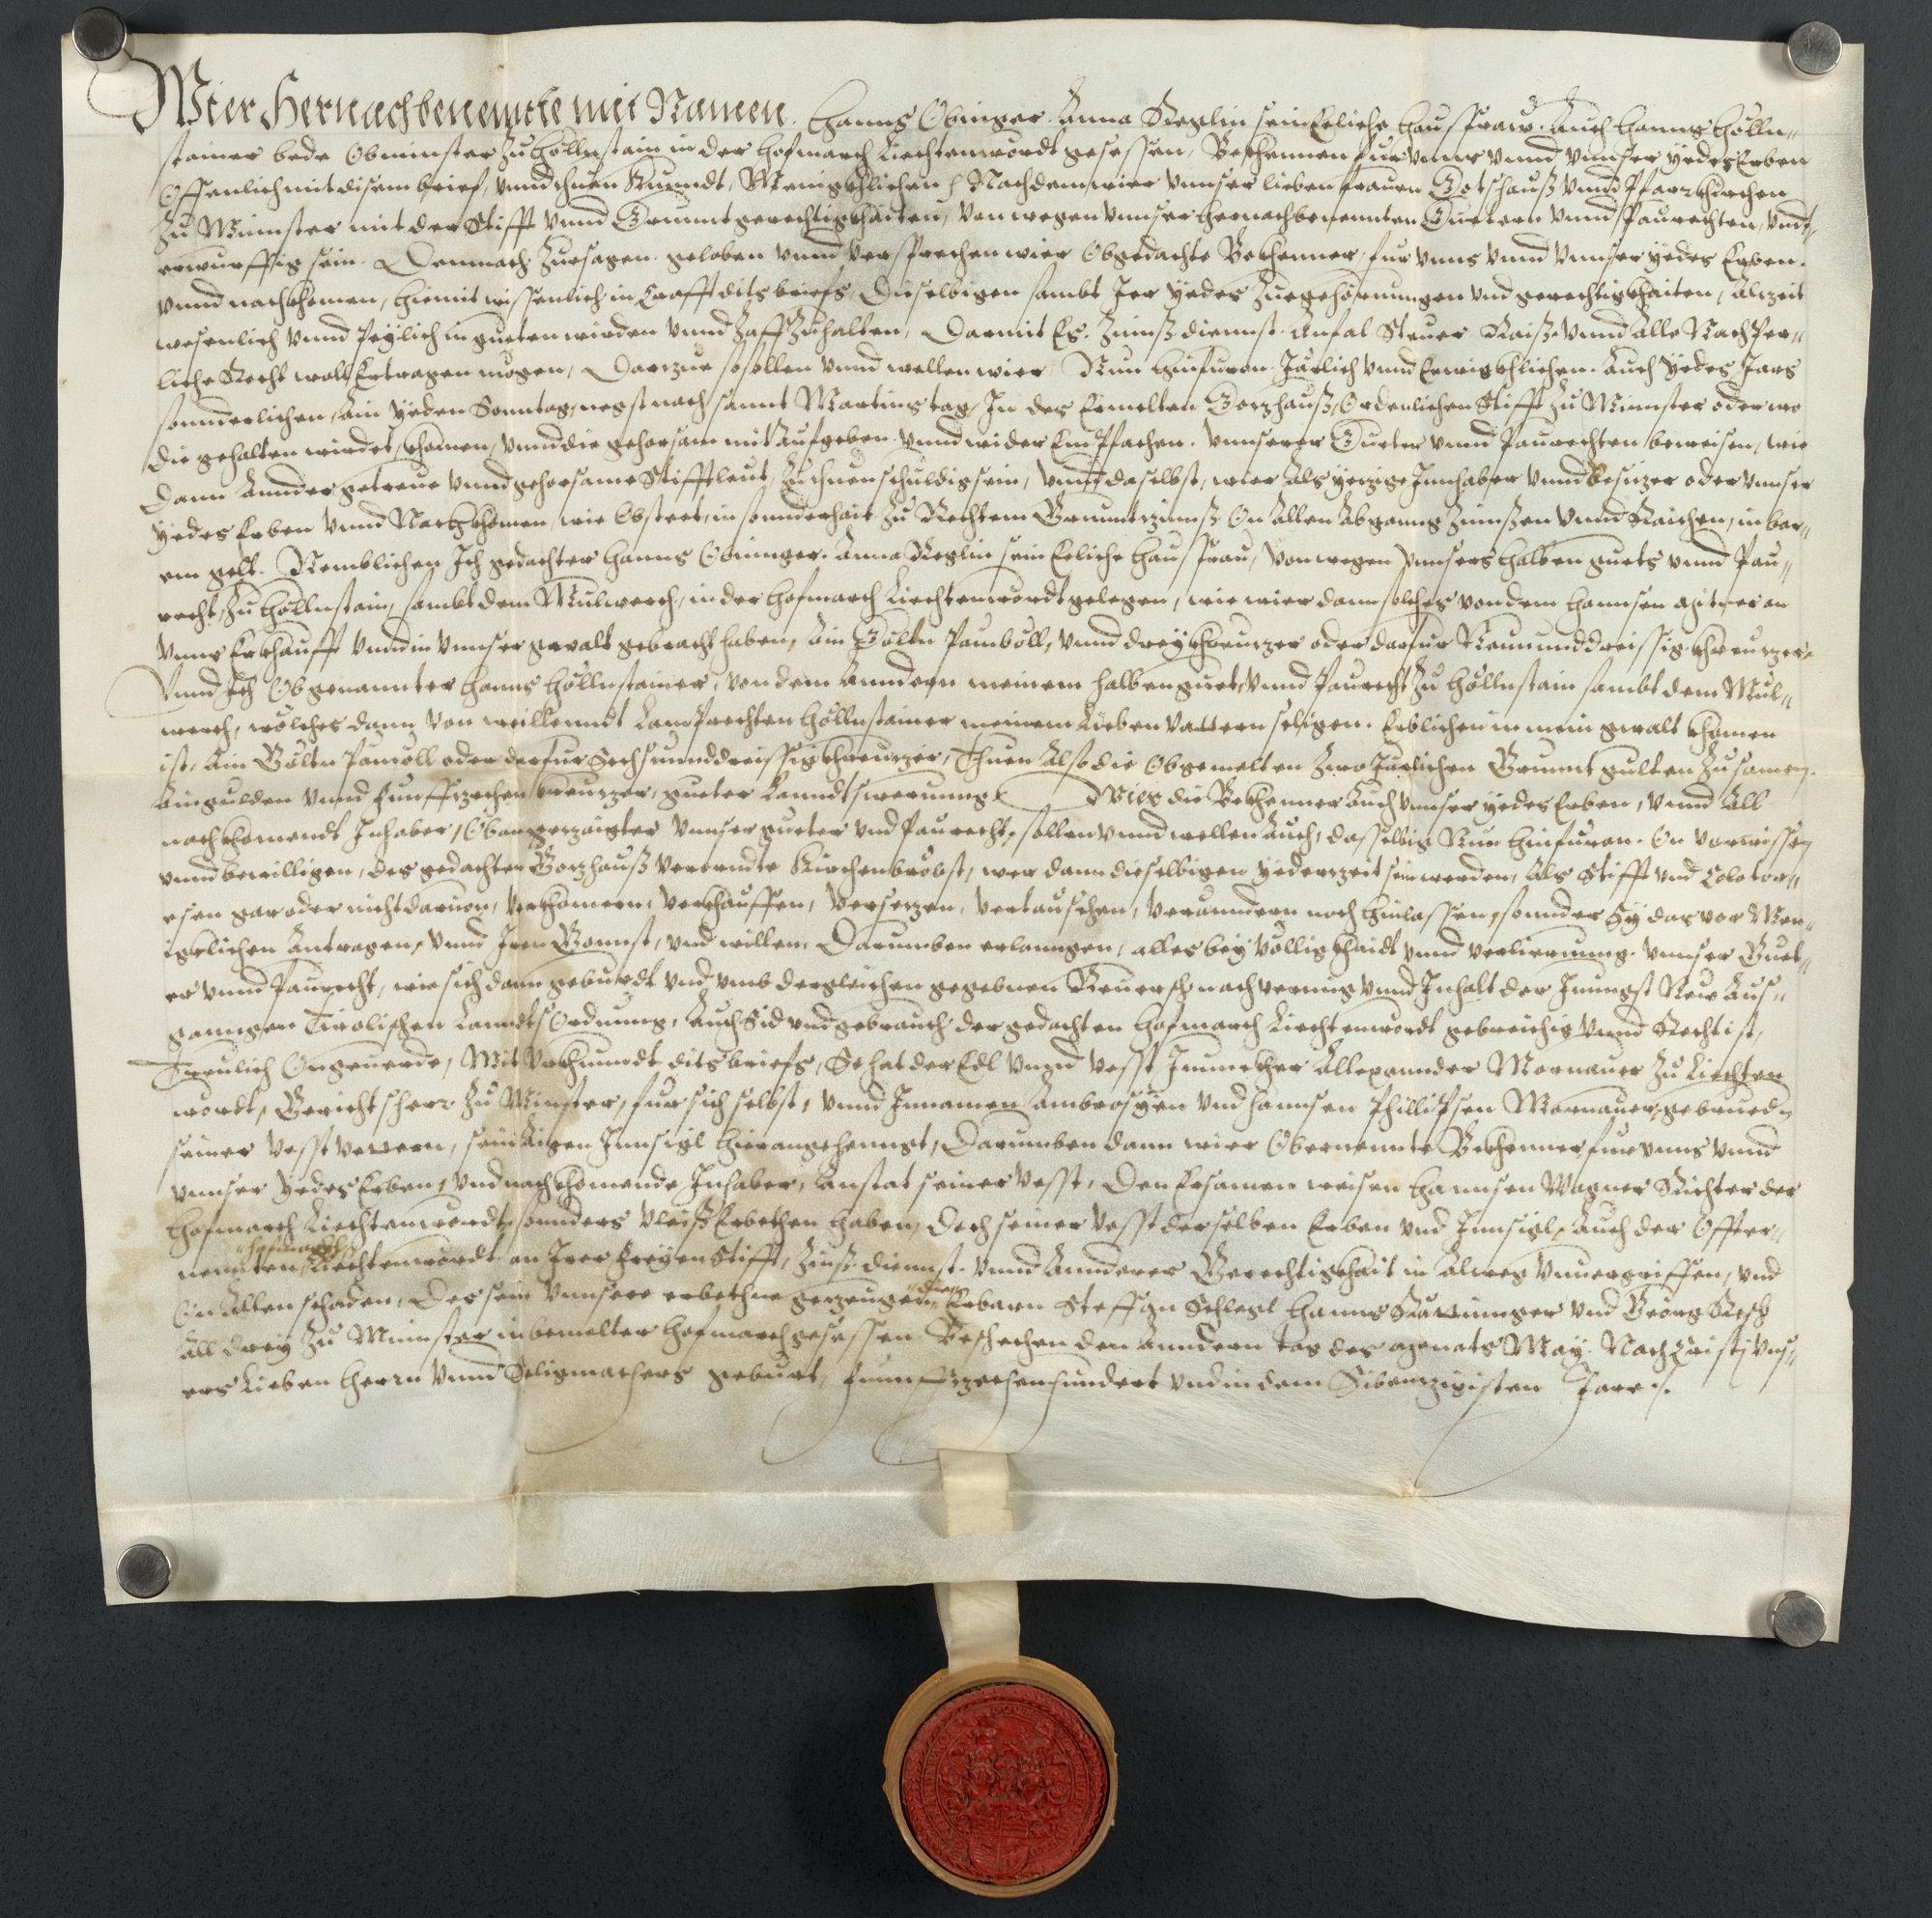 Wier Hernachbenenntte mit Namen. Hanns Obinger. Anna Keglin sein Eeliche Hausfraw. Auch Hanns Hölln¬
stainer bede Obminster zu Höllnstain in der Hofmarch Liechtenwördt gesessen, Bekhennen für unns unnd unnser yedes Erben
Offenlich mit disem brief, unnd thuen Kunndt, Menigkhlichen / Nachdem wier unnser lieben frauen Gotshauß unnd Pfarrkhirchen
zu Münnster mit der Stifft unnd Grunntgerechtigkhaiten, von wegen unnser hernachbenennten Güetern unnd Paurechten, und¬
erwurffig sein. Demnach zuesagen. geloben unnd versprechen wier Obgedachte Bekhenner, für unns unnd unnser yedes Erben.
unnd nachkhomen, hiemit wissenlich in Crafft dits briefs, Dieselbigen sambt Irer yedes zuegehörnungen und gerechtigkhaiten, Alzeit
wesenlich unnd Peylich in gueten wirden unnd Pau zuhalten, Darmit Es. Zinnß dienst. Anfal Steuer Raiß unnd Alle Nachper¬
liche Recht woll Ertragen mögen, Darzue so sollen unnd wellen wier, Nun hinfüron Järlich unnd Ewigkhlichen. Auch yedes Jars
sonnderlichen, Am yeden Sonntag, negst nach sannt Martins tag, In des Ermelten Gozhauß, Ordenlichen Stifft zu Münnster oder wo
die gehalten wirdet, khomen, unnd die gehorsam mit Aufgeben. unnd wider Emphachen. unnserer Güeter unnd Paurechten beweisen, wie
dann Annder getreue unnd gehorsame Stifftleut, zuthuen schuldig sein, unnd daselbst, wier Als yezige Innhaber unnd besitzer oder unnser
yedes Erben unnd Nachkhomen, wie Obsteet, in sonnderhait zu Rechtem Grunntzinnß On Allen Abganng Zinnßen unnd Raichen, in bar¬
em gelt. Nemblichen Ich gedachter Hanns Obinger. Anna Keglin sein Eeliche Hausfrau, von wegen unnsers halben guets unnd Pau¬
recht, zu Höllnstain, sambt dem Mülwerch, in der Hofmarch Liechtenwördt gelegen, wie wier dann solches von dem Hannsen an
unns Erkhaufft unnd in unnser gwalt gebracht haben, Ain Gülten Pamböll, unnd drey Khreutzer oder darfür Neununddreissig Khreutzer
Unnd Ich Obgenannter Hanns Höllnstainer, von dem Anndern meinem halben guet, unnd Paurecht zu Höllnstain sambt dem Mül¬
werch, wölches dann von weillenndt Lamprechten Höllnstainer meinem Lieben Vattern seligen. Erblichen in mein gwalt khomen
ist, Ain Gülten Pamöll oder darfür Sechsunnddreissig Khreutzer, Thuen Also die Obgemelten zwo Järlichen Grunnt gülten zusamen.
Ain gulden unnd Funffzechen Kreutzer, gueter Lanndtswerung. Wier die Bekhenner Auch unnser yedes Erben, unnd All
nachkhomendt Inhaber, Obanngezaigter unnser güeter und Paurecht, sollen unnd wellen Auch, dasselbig Nun hinfüron. On vorwissen
unnd bewilligen, des gedachten Gozhauß verordnte Kirchenbröbst, wer dann dieselbigen yederzeit sein werden, Als Stifft und Colator¬
esen gar oder nicht daruon, verkhomern, verkhauffen, versetzen, vertauschen, veranndern noch hinlassen, sonnder Sy das vor Men¬
igklichen Antragen, unnd Iren Gonnst, und willen Darumben erlanngen, alles bey völligkhaidt unnd verlierung. unnser Güet¬
er unnd Paurecht, wie sich dann gebürdt und umb dergleichen gegebnen Reuersch nach vermug unnd Inhalt der Jüngst New Aus¬
ganngen Tirolischen Lanndtsordnung, Auch Sid und gebrauch der gedachten Hofmarch Liechtenwördt gebreichig unnd Recht ist,
Treulich Ongeuerde, Mit Urkhundt dits briefs, So hat der Edl unnd Vesst Junnckher Allexannder Mornauer zu Liechten
wordt, Gerichtsherr zu Münster, für sich selbst, unnd Innamen Ambrosyen und Hannsen Phillipsen Mornauer gebrueder
seiner Vesst Vettern, sein Aigen Innsigl hieran gehenngt, Darumben dann wier Obernennte Bekhenner für unns unnd
unnser yedes Erben, und nachkhomende Inhaber, Anstat seiner Vesst, Den Ersamen weisen Hannsen Wagner Richter der
Hofmarch Liechtenwerdt, sonnders Vleiß Erbethen haben, Doch seiner Vesst derselben Erben und Innsigl, Auch der Offter¬
nennten Hofmarch Liechtenwördt an Irer Freyen Stifft, Zinß. dienst. unnd Annderer Gerechtigkhait in Alweg unuergriffen, und
On Allen schaden, Des sein unnsere erbethne gezeugen, die Erbarn Steffan Schlegl Hanns und Geörg Resch
All drey zu Münnster in bemelter Hofmarch gesessen. Beschechen den Anndern tag des Monats May. Nach Cristj uns¬
ers Lieben Herrn unnd Seligmachers geburt, funffzechenhundert und in dem Sibentzigisten Jare.